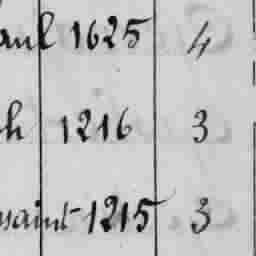 aul 1625 4
h 1216 3
saint 1215 3